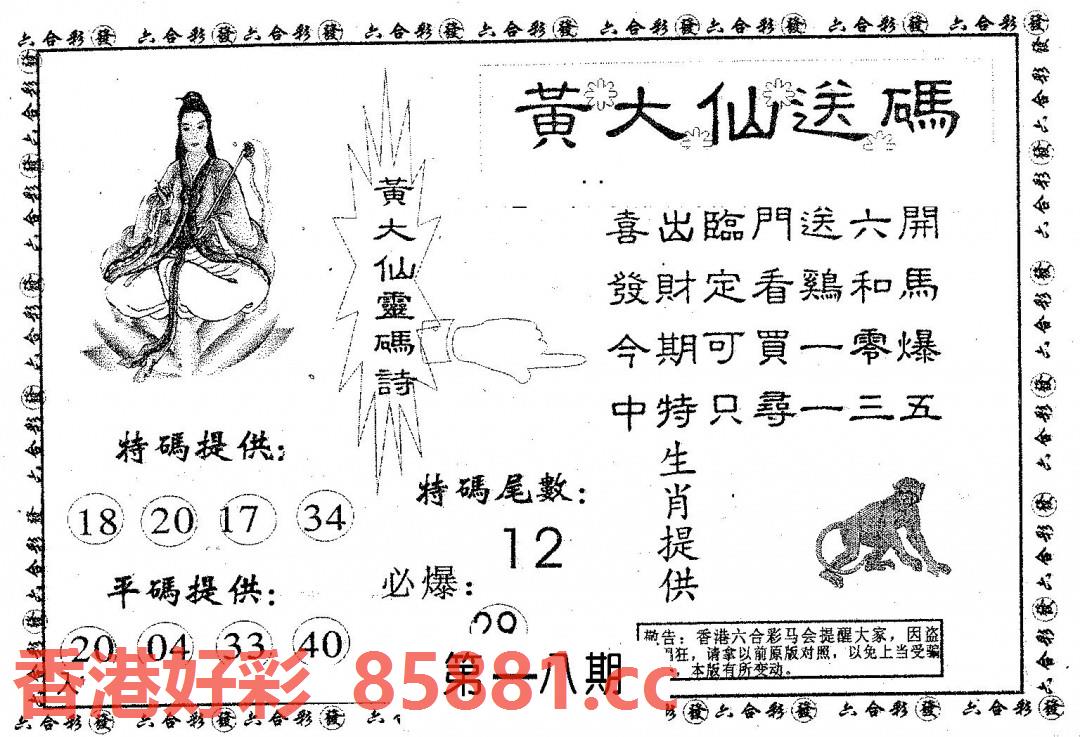 六合彩發 六合彩發 六合彩發 六合彩發 六合彩發 六合彩發 六合彩發 六合彩發 六合彩發
黃大仙送碼
黃大仙靈碼詩
喜出臨門送六開
發財定看鷄和馬
今期可買一零爆
中特只尋一三五
特碼提供：
18 20 17 34
平碼提供：
20 04 33 40
特碼尾數：
12
必爆：
29
生肖提供
敬告：香港六合彩马会提醒大家，因盗
狂，请拿以前原版对照，以免上当受骗
，本版有所变动。
第一八期
香港好彩 85881.cc
六合彩發 六合彩發 六合彩發 六 六合彩發 六合彩發 六合彩發